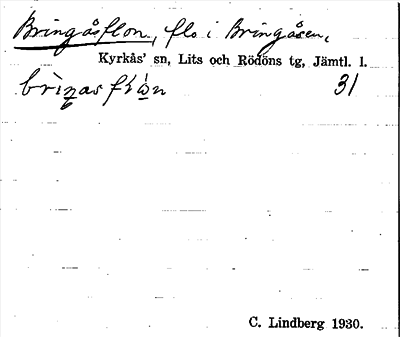 Bringåsflon, flo i Bringåsen,
Kyrkås' sn, Lits och Rödöns tg, Jämtl. l.
31
C. Lindberg 1930.